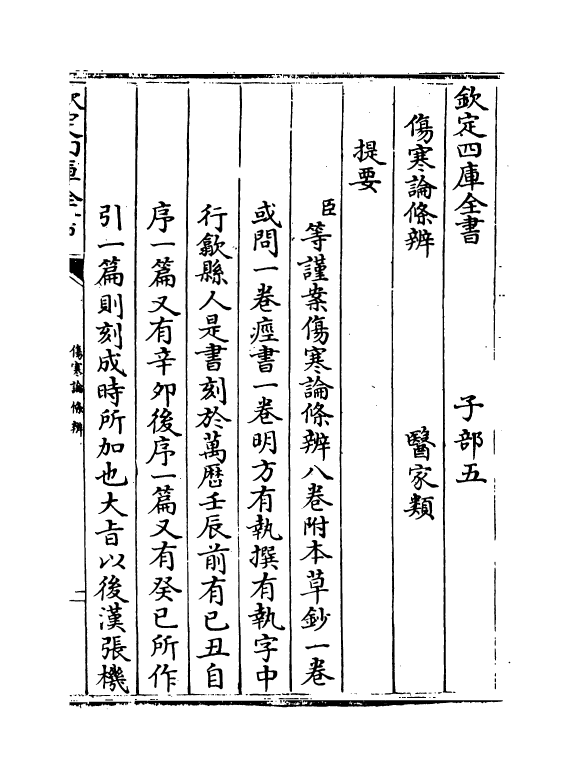 欽定四庫全書　　　　子部五
傷寒論條辨　　　　醫家類
提要
臣等謹案傷寒論條辨八卷附本草鈔一卷
或問一卷痙書一卷明方有執撰有執字中
行歙縣人是書刻於萬厯壬辰前有已丑自
序一篇又有辛卯後序一篇又有癸已所作
引一篇則刻成時所加也大旨以後漢張機
傷寒論條辨